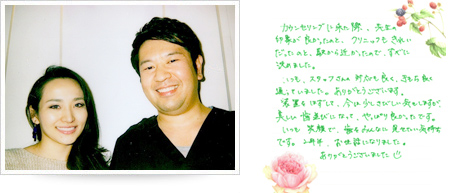 カウンセリングに来た際、先生の
印象が良かったのと、クリニックもきれい
だったのと、駅から近かったので、すぐに
決めました。
いつも、スタッフさんの対応も良く、きもち良く
通っていました。ありがとうございます。
装置をはずして、今は少しさびしい気もしますが、
美しい歯並びになって、やっぱり良かったです。
いつも笑顔で、歯をみんなに見せたい気持ち
です。2年半、お世話になりました。
ありがとうございました